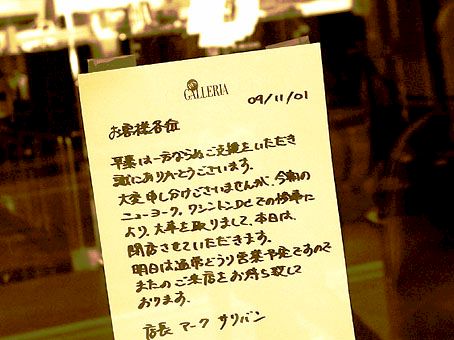 GALLERIA
09/11/01
お客様各位
平素は一方ならぬご支援をいただき
誠にありがとうございます。
大変申し分けございませんが、今朝の
ニューヨーク。ワシントンDCでの惨事に
より、大事を取りまして、本日は、
閉店させていただきます。
明日は通常どうり営業予定ですので
またのご来店をお待ち致して
おります。
店長 マーク サリバン